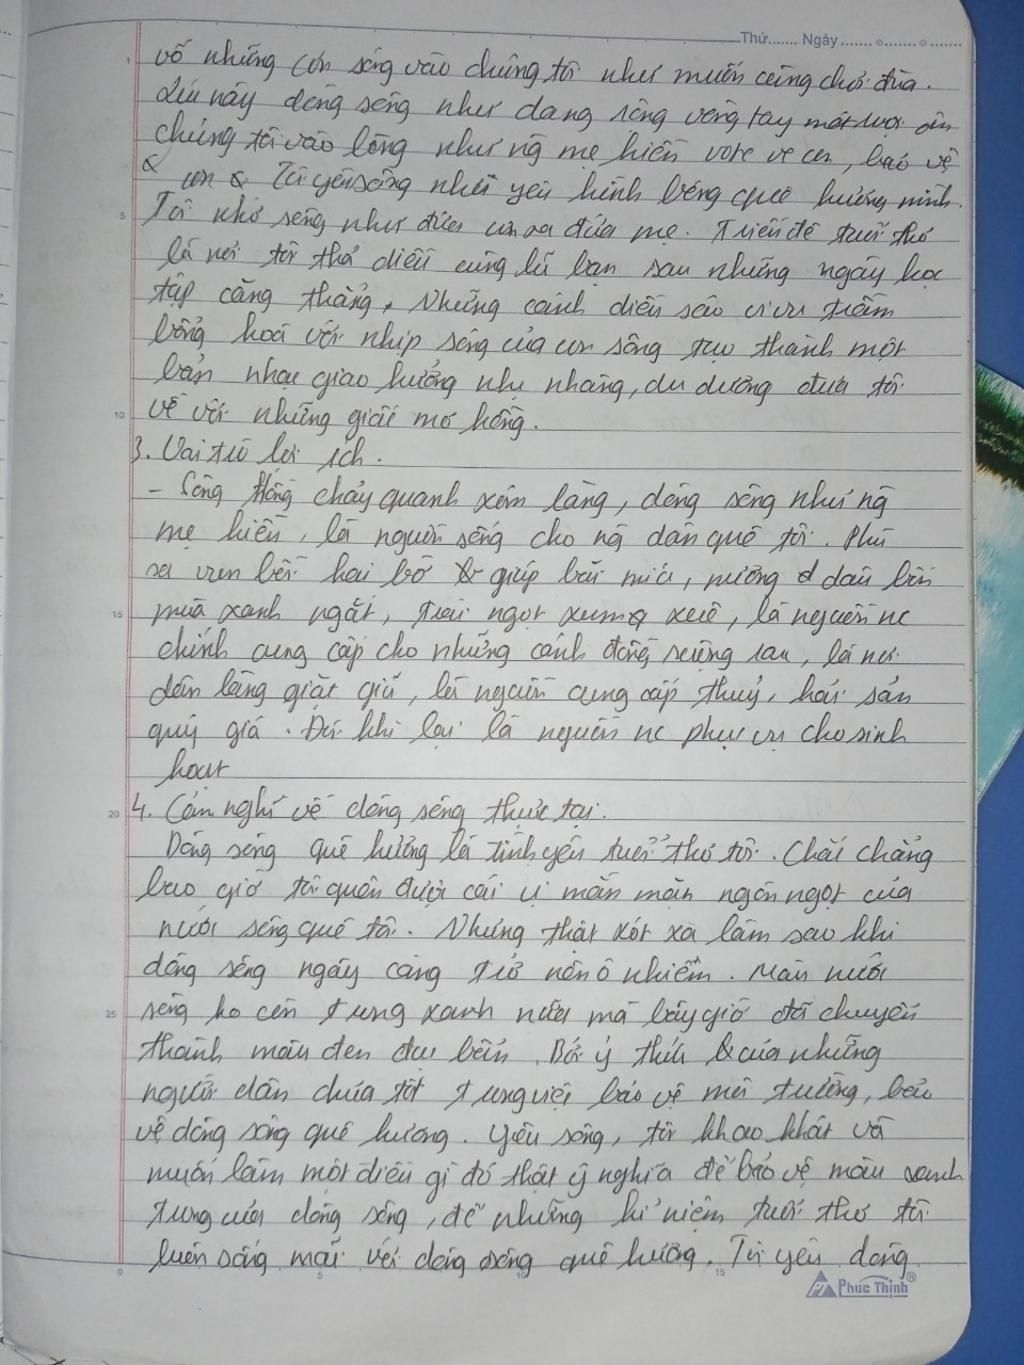 Thứ....... Ngày
vỗ những con sóng vào chúng tôi như muốn cùng chơi đùa.
Lúc này dòng sông như dang rộng vòng tay ôm
chúng tôi vào lòng như ng mẹ hiền vỗ về con, bảo vệ
con Tôi yêu sông như yêu hình bóng quê hương mình.
Tôi nhớ sông như đứa con xa đứa mẹ. Triền đê tuổi thơ
là nơi tôi thả diều cùng lũ bạn sau những ngày học
tập căng thẳng, Những cánh diều sáo vi vu trầm
bổng hoà với nhịp sóng của con sông tạo thành một
bản nhạc giao hưởng nhẹ nhàng, du dương đưa tôi
về với những giấc mơ hồng.
3. Vai trò lợi ích.
- Sông Hồng chảy quanh xóm làng, dòng sông như ng
mẹ hiền, là nguồn sống cho ng dân quê tôi. Phù
sa ven bồi hai bờ giúp bãi mía, nương dâu bốn
mùa xanh ngắt, trái ngọt xum xuê, là nguồn nc
chính cung cấp cho những cánh đồng ruộng rau, là nơi
dân làng giặt giũ, là nguồn cung cấp thuỷ, hải sản
quý giá. Đôi khi lại là nguồn nc phục vụ cho sinh
hoạt
4. Cảm nghĩ về dòng sông thực tại.
Dòng sông quê hương là tình yêu tuổi thơ tôi. Chắc chẳng
bao giờ tôi quên được cái vị mằn mặn ngòn ngọt của
nước sông quê tôi. Nhưng thật xót xa làm sao khi
dòng sông ngày càng trở nên ô nhiễm. Màu nước
sông ko còn trong xanh nữa mà bây giờ đã chuyển
thành màu đen đục bẩn. Bởi ý thức của những
người dân chưa tốt trong việc bảo vệ môi trường, bảo
vệ dòng sông quê hương. Yêu sông, tôi khao khát và
muốn làm một điều gì đó thật ý nghĩa để bảo vệ màu xanh
trong của dòng sông, để những kỉ niệm tuổi thơ tôi
luôn sống mãi với dòng sông quê hương. Tôi yêu dòng
Phúc Thịnh